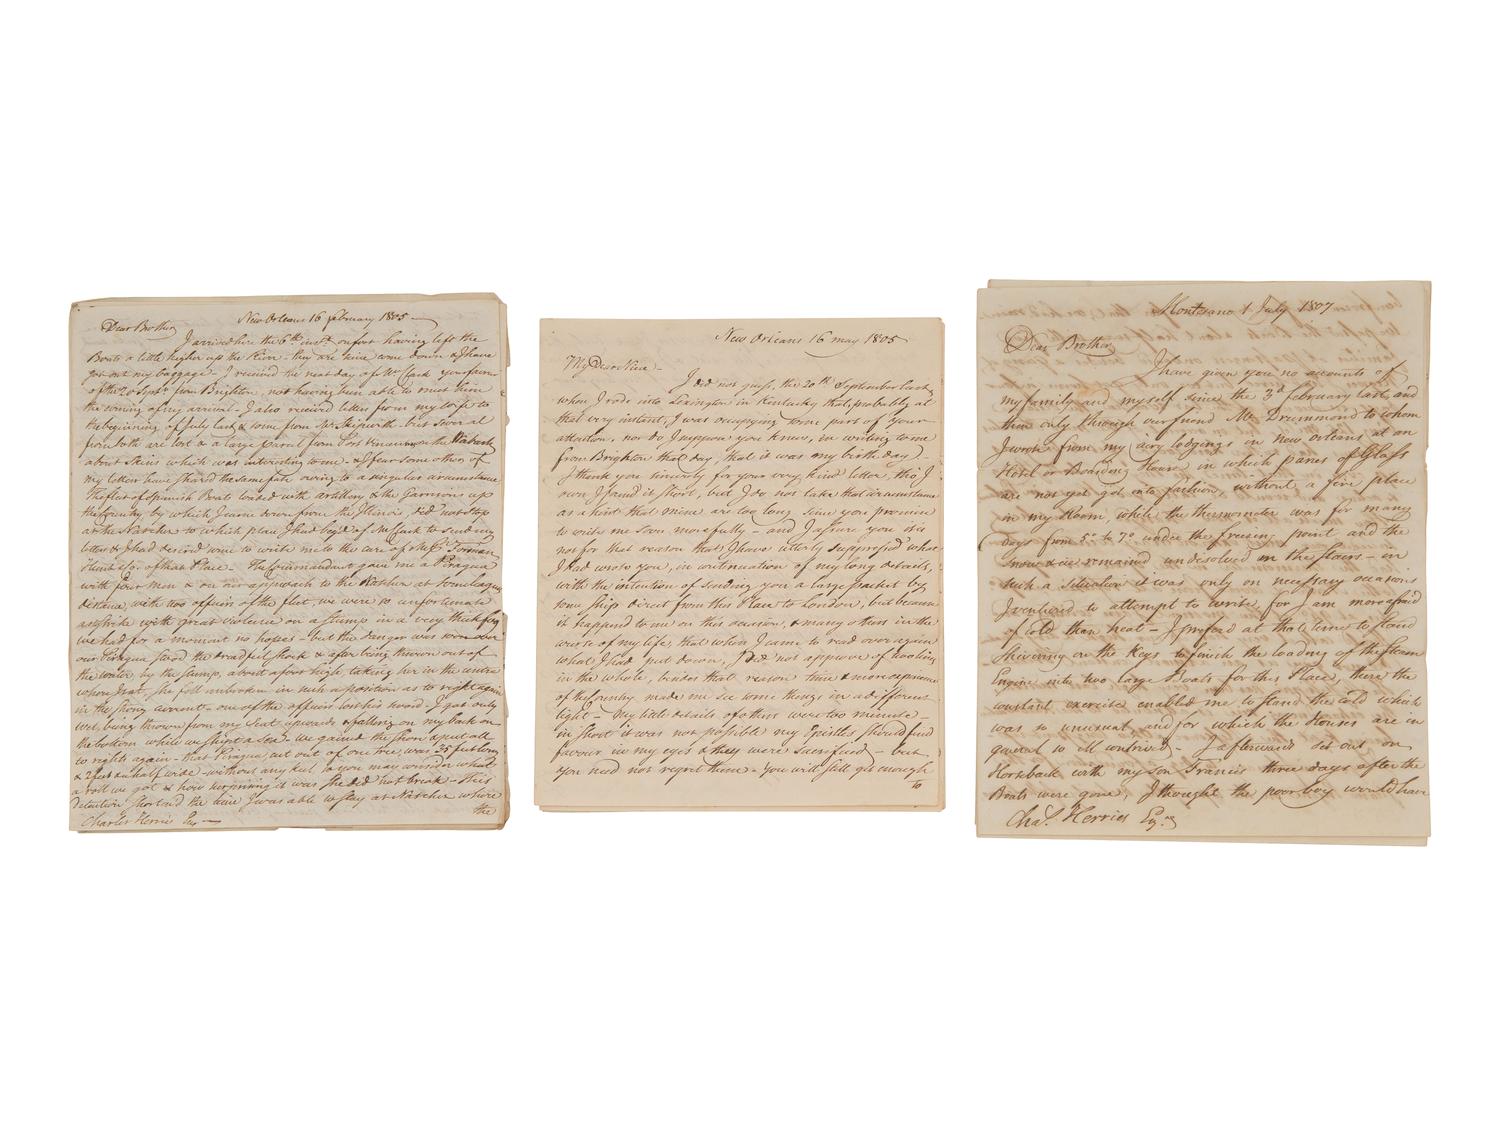 New Orleans 16 February 1805
Dear Brother
I arrived here the 6th inst. on foot having left the
Boats a little higher up the River - they are since come down & I have
got out my baggage - I received the next day of Mr Clark your favor
of the 20 Sept. from Brighton, not having been able to meet him
the evening of my arrival - I also received letters from my wife to
the beginning of July last & some from Mr Skipwith - but several
from both are lost & a large parcel from Post Vincennes on the Wabash
about Skins which was interesting to me - & I fear some others of
my letters have shared the same fate owing to a singular circumstance
The fleet of Spanish Boats loaded with artillery & the Garrisons up
the Country by which I came down from the Illinois did not stop
at the Natchez to which place I had beg'd of Mr Clark to send my
letters & I had desired some to write me to the care of Mess. Forman
of that Place - The Commandant gave me a Piragua
with four men & on our approach to the Natchez at some leagues
distance, with two officers of the fleet, we were so unfortunate
as to strike with great violence on a stump in a very thick fog
we had for a moment no hopes - but the danger was soon over
our Piragua stood the dreadful shock & after being thrown out of
the water by the stump, about a foot high, taking her in the centre
where I sat, she fell unbroken in such a position as to right again
in the strong current - one of the officers lost his sword - I got only
wet, being thrown from my seat upwards & falling on my back on
the bottom while we shipt a sea - we gained the shore & put all
to rights again - that Piragua, cut out of one tree, was 35 feet long
& 2 feet & a half wide - without any keel so you may consider what
a roll we got & how surprising it was she did not break - this
detention shortened the time I was able to stay at Natchez where
the
Charles Herries Esq

New Orleans 16 may 1805
My Dear Niece -
I did not guess, the 20th September last,
when I rode into Lexington in Kentucky that, probably at
that very instant, I was occupying some part of your
attention, nor do I suppose you knew, in writing to me
from Brighton that day, that it was my birth day -
I thank you sincerely for your very kind letter, tho' I
own I found it short, but I do not take that circumstance
as a hint that mine are too long since you promise
to write me soon more fully - and I assure you it is
not for that reason that I have utterly suppress'd what
I had wrote you, in continuation of my long details,
with the intention of sending you a large packet by
some Ship direct from this Place to London, but because
it happened to me on this occasion, & many others in the
course of my life, that when I came to read over again
what I had put down, I did not approve of
in the whole, besides that reason time & more experience
of the Country made me see some things in a different
light - My little details of others were too minute -
in short it was not possible my Epistles should find
favour in my eyes & they were sacrificed - but
you need not regret them - You will still get enough
to

Montesano 1 July 1807
Dear Brother
I have given you no accounts of
my family and myself since the 3d February last, and
then only through our friend Mr Drummond to whom
I wrote from my airy lodgings in new Orleans at an
Hotel or Boarding House in which panes of Glass
are not yet got into fashion, without a fire place
in my Room, while the thermometer was for many
days from 5° to 7° under the freezing point and the
snow & ice remained undissolved in the streets - in
such a situation it was only on necessary occasions
I ventured to attempt to write, for I am more afraid
of Cold than heat - I prefered at that time to stand
shivering on the Keys to finish the loading of the steam
Engine into two large Boats for this Place, there the
constant exercise enabled me to stand the cold which
was so unusual and for which the Houses are in
general so ill contrived - I afterwards set out on
Horseback with my Son Francis three days after the
Boats were gone, I thought the poor boy would have
Cha.s Herries Esq.re